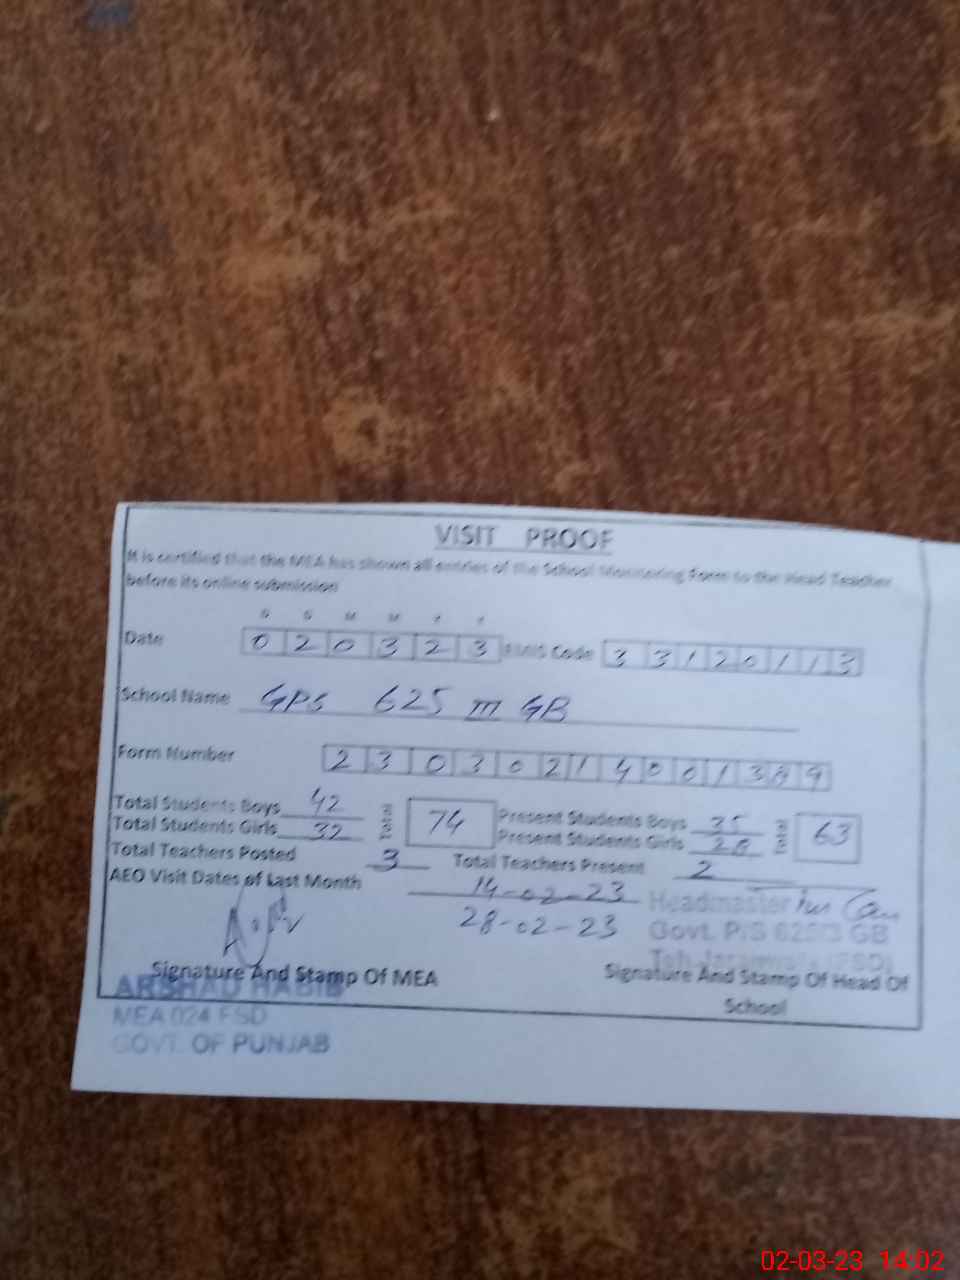 VISIT PROOF
It is certified that the MEA has shown all entries of the School Monitoring Form to the Head Teacher
before its online submission
D D M M Y Y
Date 0 2 0 3 2 3 EMIS Code 3 3 1 2 0 1 1 3
School Name GPS 625 III GB
Form Number 2 3 0 3 0 2 1 4 0 0 1 3 8 9
Total Students Boys 42 Total 74 Present Students Boys 35 Total 63
Total Students Girls 32 Present Students Girls 28
Total Teachers Posted 3 Total Teachers Present 2
AEO Visit Dates of Last Month 14-02-23
28-02-23
Headmaster
Govt. P/S 625/3 GB
Teh Jaranwala (FSD)
Signature And Stamp Of MEA Signature And Stamp Of Head Of
School
ARSHAD HABIB
MEA 024 FSD
GOVT. OF PUNJAB
02-03-23 14:02